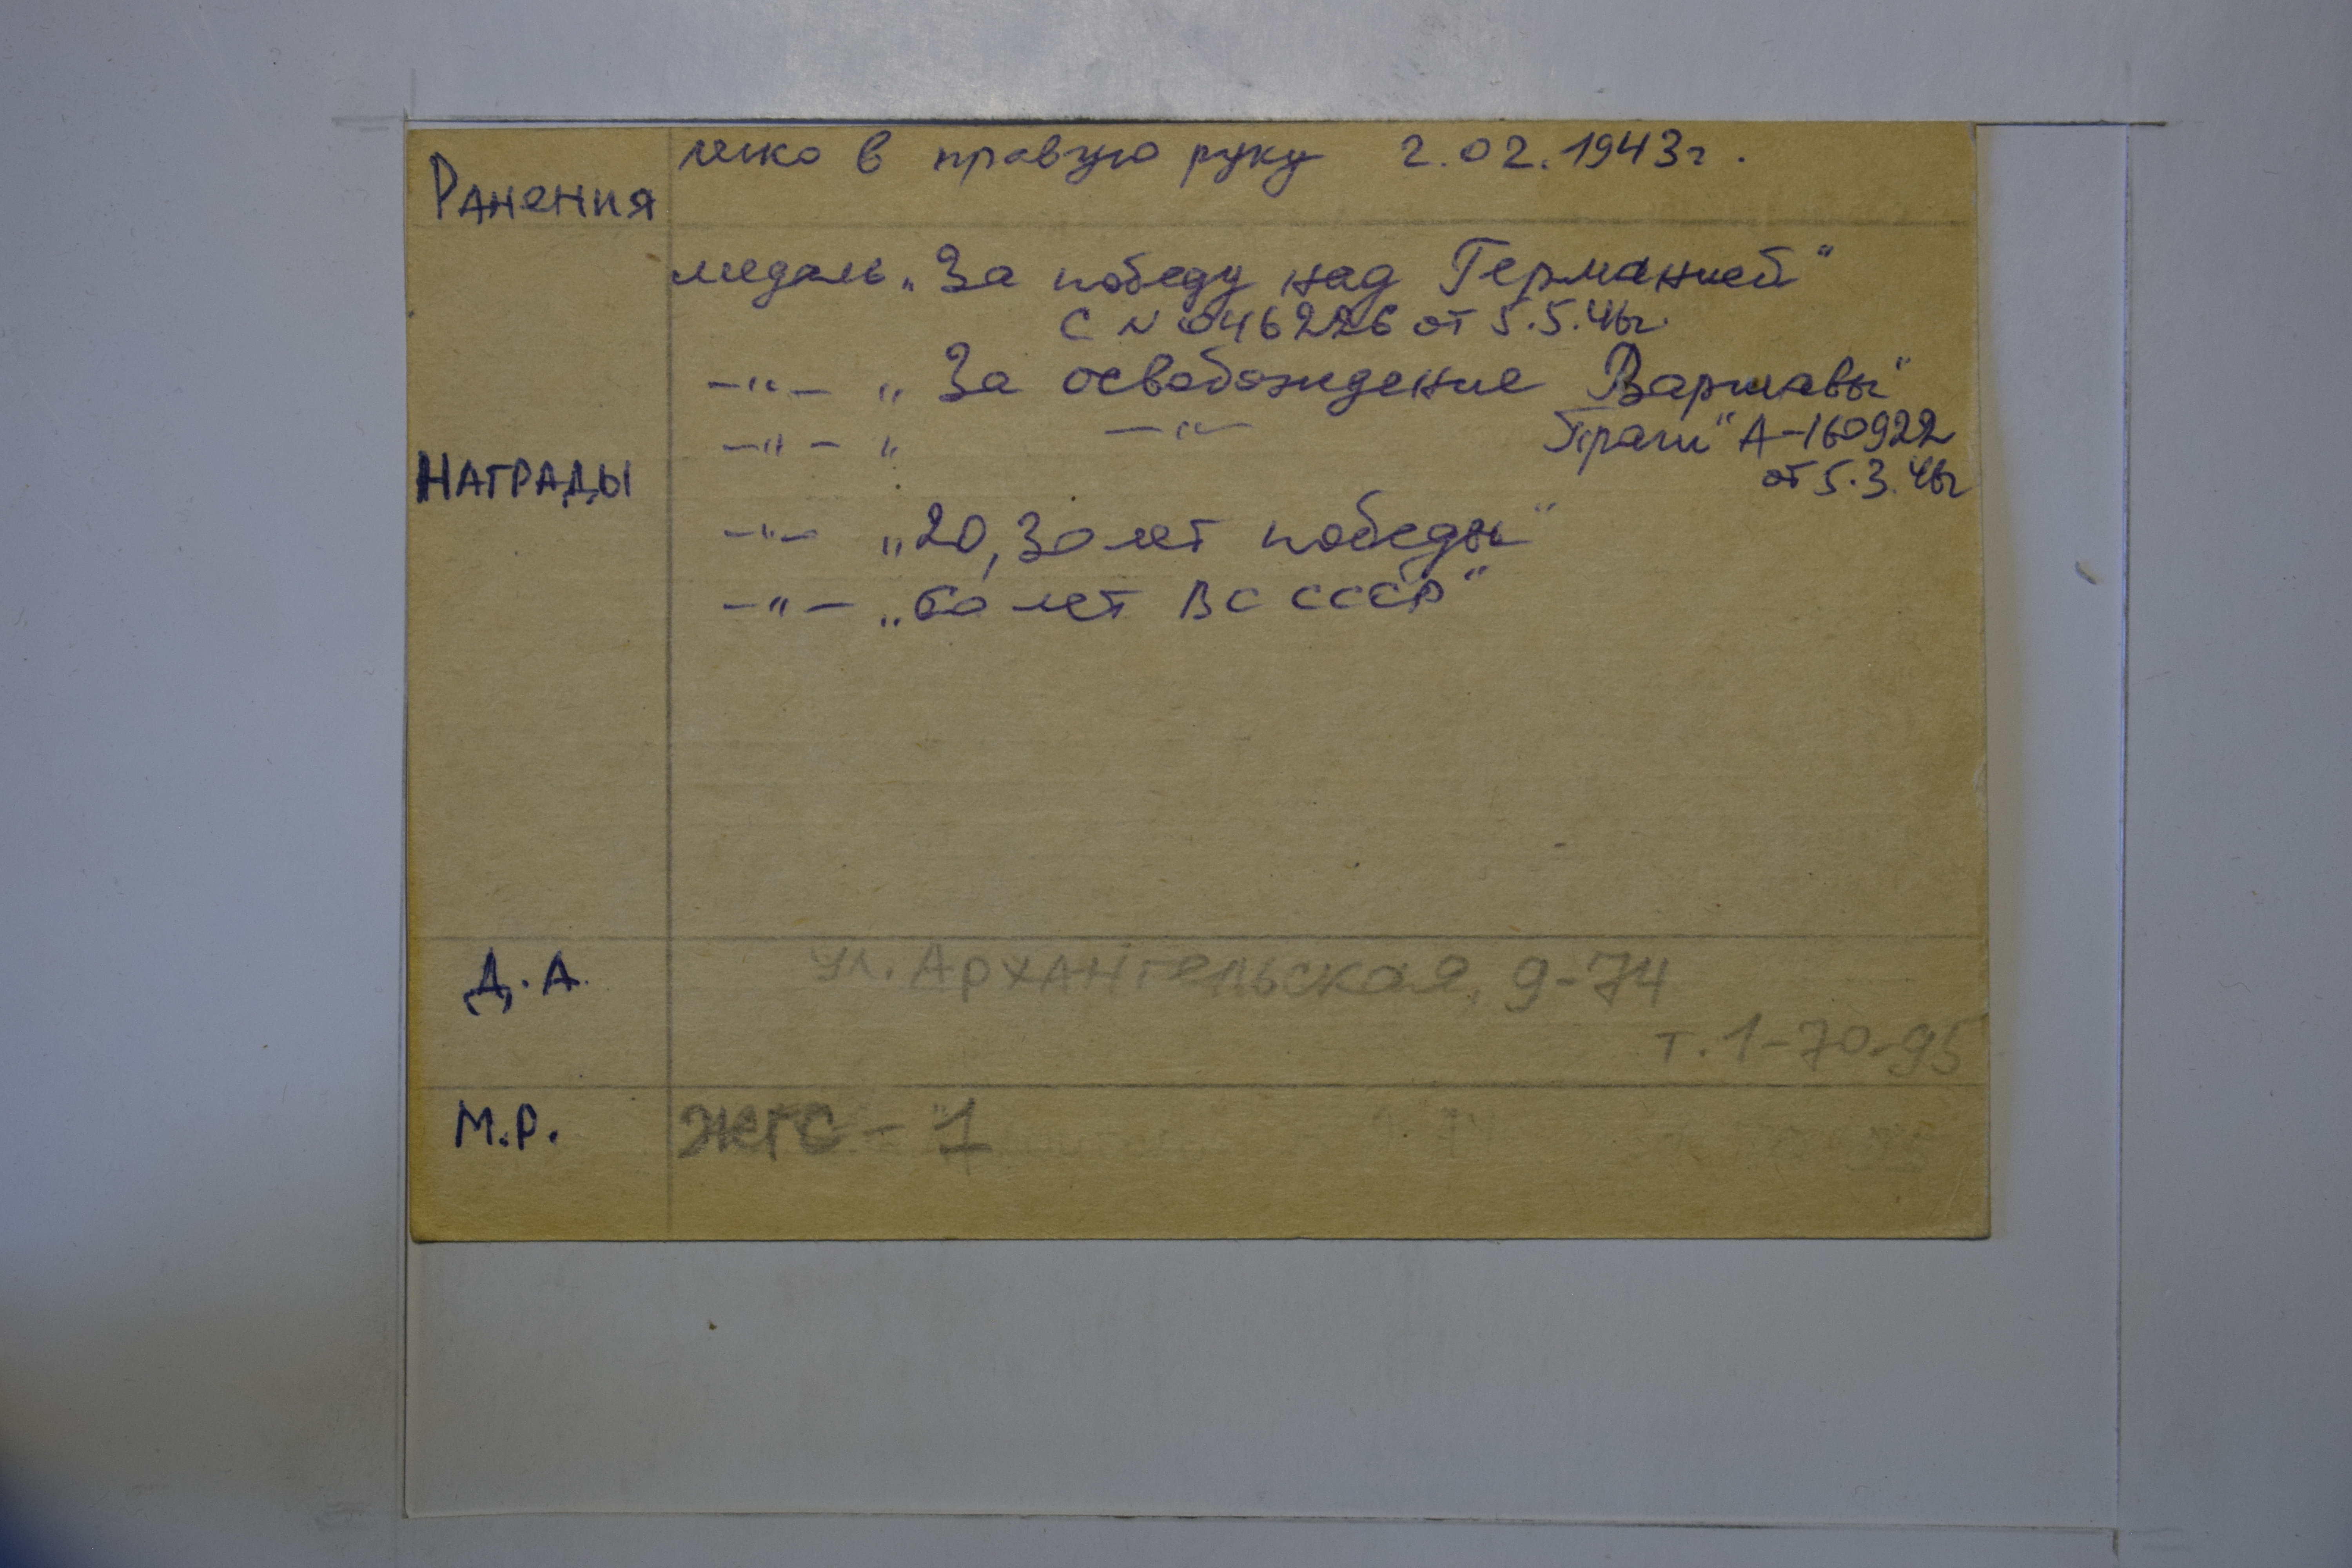 Ранения легко в правую руку 2.02.1943г.
медаль „За победу над Германией"
С № 046226 от 5.5.46г.
—"— „За освобождение Варшавы"
НАГРАДЫ —"— „ —"— Праги" А-160922
от 5.3.46г
—"— „20, 30 лет победы"
—"— „60 лет ВС СССР"
Д.А. ул. Архангельская, 9-74
т. 1-70-95
М.Р. ЖГС-1